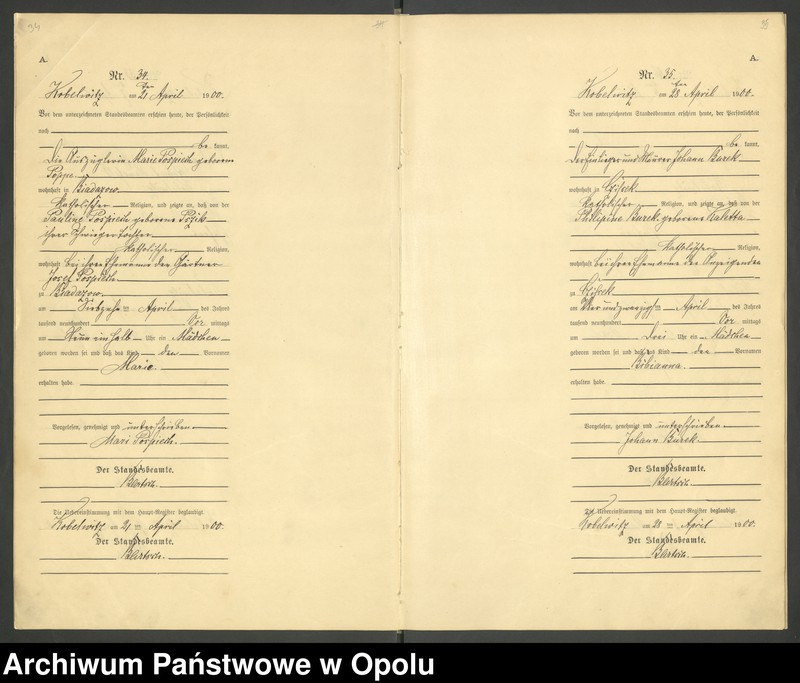 A.
Nr. 34.
Kobelwitz am 21 ten April 1900.
Vor dem unterzeichneten Standesbeamten erschien heute, der Persönlichkeit
nach
be kannt,
die Auszüglerin Marie Pospiech geborene
Poppe
wohnhaft in Biadazow
katholischer Religion, und zeigte an, daß von der
Pauline Pospiech geborene
ihrer Schwiegertochter
katholischer Religion,
wohnhaft bei ihrem Ehemanne dem Gärtner
Josef Pospiech
zu Biadazow
am Siebzehn ten April des Jahres
tausend neunhundert Vor mittags
um Neun ein halb Uhr ein Mädchen
geboren worden sei und daß das Kind den Vornamen
Marie.
erhalten habe.
Vorgelesen, genehmigt und unterschrieben
Mari Pospiech.
Der Standesbeamte.
Die Uebereinstimmung mit dem Haupt-Register beglaubigt.
Kobelwitz am 21 ten April 1900.
Der Standesbeamte.
A.
Nr. 35.
Kobelwitz am 28 ten April 1900.
Vor dem unterzeichneten Standesbeamten erschien heute, der Persönlichkeit
nach
be kannt,
der Einlieger und Maurer Johann Burek
wohnhaft in Czissek
katholischer Religion, und zeigte an, daß von der
Philippine Burek geborene Kaletta
katholischer Religion,
wohnhaft bei ihrem Ehemanne dem Anzeigenden
zu Czissek
am Vierundzwanzigsten April des Jahres
tausend neunhundert Vor mittags
um Drei Uhr ein Mädchen
geboren worden sei und daß das Kind den Vornamen
Bibianna
erhalten habe.
Vorgelesen, genehmigt und unterschrieben
Johann Burek.
Der Standesbeamte.
Die Uebereinstimmung mit dem Haupt-Register beglaubigt.
Kobelwitz am 28 ten April 1900.
Der Standesbeamte.
Archiwum Państwowe w Opolu